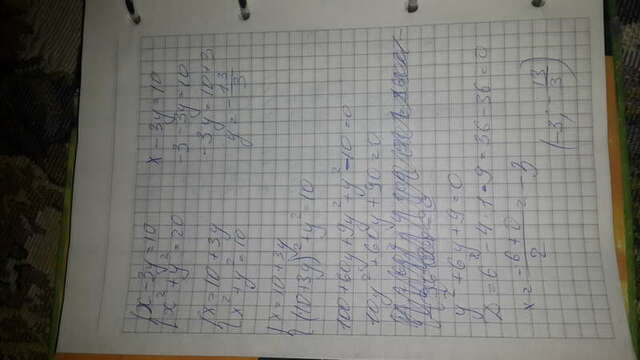 {x - 3y = 10
x² + y² = 20
{x = 10 + 3y
x² + y² = 10
{x = 10 + 3y
(10 + 3y)² + y² = 10
100 + 60y + 9y² + y² - 10 = 0
10y² + 60y + 90 = 0
y² + 6y + 9 = 0
D = 6² - 4 · 1 · 9 = 36 - 36 = 0
x = (-6 + 0)/2 = -3
x - 3y = 10
-3 - 3y = 10
-3y = 10 + 3
y = -13/3
(-3; -13/3)